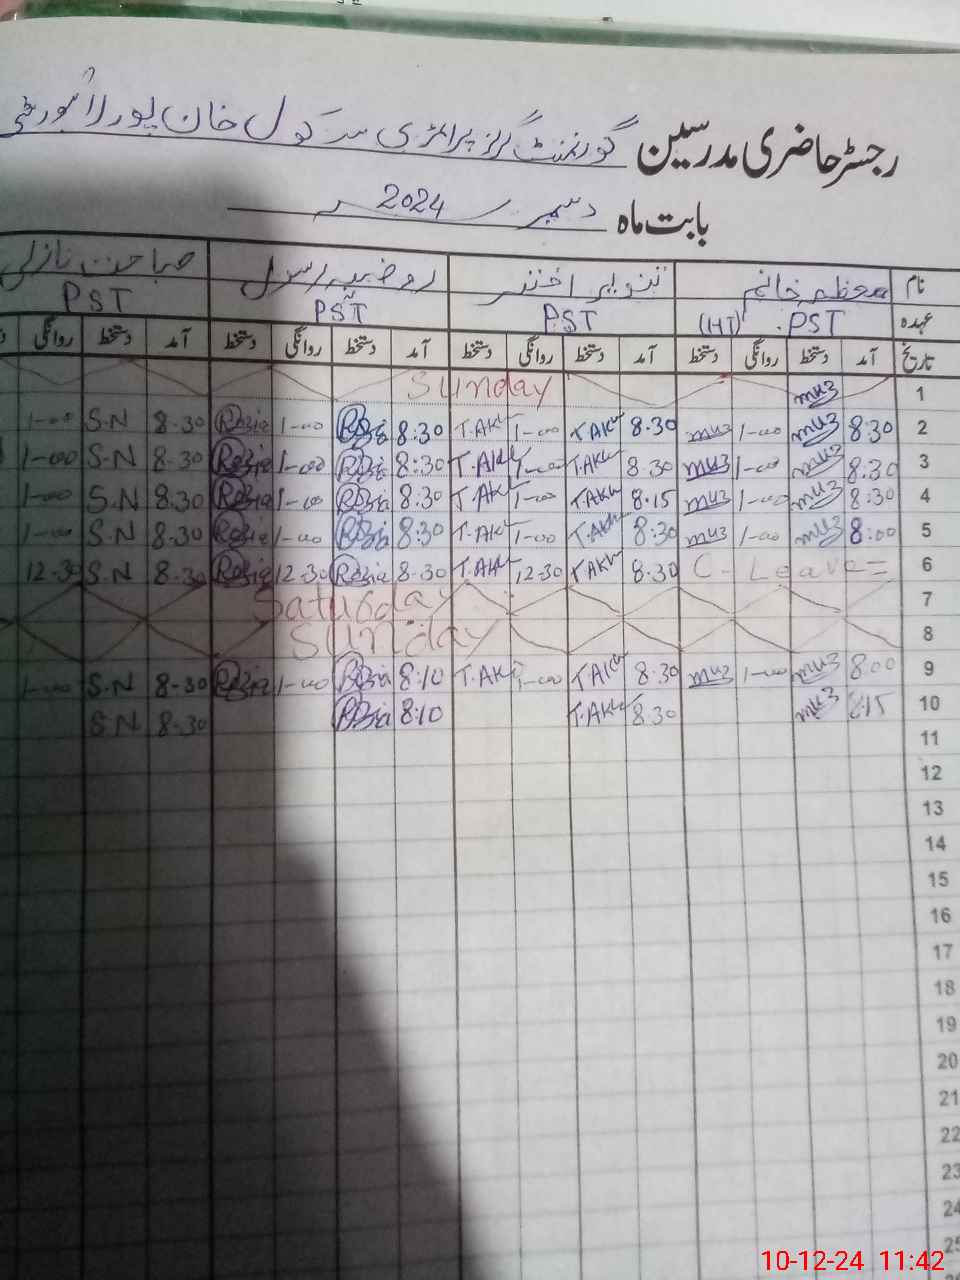 رجسٹر حاضری مدرسین گورنمنٹ گرلز پرائمری سکول خان پور
بابت ماہ دسمبر 2024
نام معظمہ خانم تنویر اختر رضیہ رسول صباحت نازلی
عہدہ PST (HT) PST PST PST
تاریخ آمد دستخط روانگی دستخط آمد دستخط روانگی دستخط آمد دستخط روانگی دستخط آمد دستخط روانگی
1 muz Sunday
2 8:30 muz 1-00 muz 8:30 T.AKu 1-00 T.AKu 8:30 Razia 1-00 Razia 8-30 S.N 1-00
3 8:30 muz 1-00 muz 8:30 T.AKu 1-00 T.AKu 8:30 Razia 1-00 Razia 8-30 S.N 1-00
4 8:30 muz 1-00 muz 8:15 T.AKu 1-00 T.AKu 8:30 Razia 1-00 Razia 8.30 S.N 1-00
5 8:00 muz 1-00 muz 8:30 T.AKu 1-00 T.AKu 8:30 Razia 1-00 Razia 8-30 S.N 1-00
6 C- Leave= 8:30 T.AKu 12-30 T.AKu 8-30 Razia 12-30 Razia 8-30 S.N 12-30
7 Saturday
8 Sunday
9 8:00 muz 1-00 muz 8:30 T.AKu 1-00 T.AKu 8:10 Razia 1-00 Razia 8-30 S.N 1-00
10 muz 8:30 T.AKu 8:10 Razia 8-30 S.N
11
12
13
14
15
16
17
18
19
20
21
22
23
24
25
10-12-24 11:42